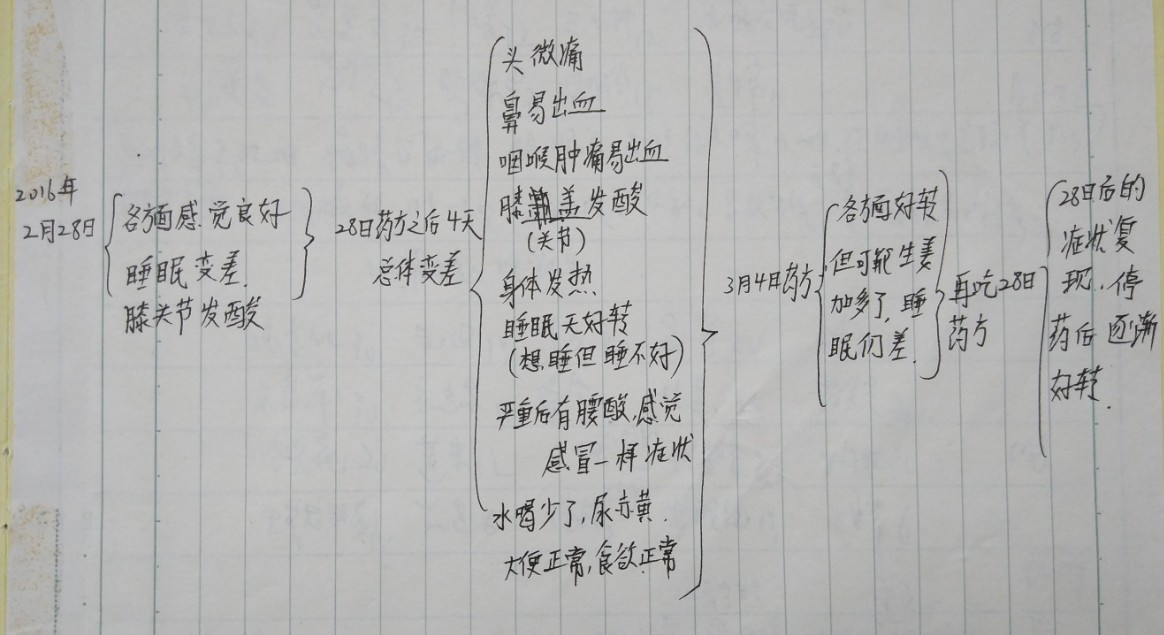 2016年
2月28日
各方面感觉良好
睡眠变差.
膝关节发酸
28日药方之后4天
总体变差
头微痛
鼻易出血
咽喉肿痛易出血
膝盖发酸
(关节)
身体发热
睡眠无好转
(想睡但睡不好)
严重后有腰酸,感觉
感冒一样症状
水喝少了,尿赤黄.
大便正常,食欲正常
3月4日药方
各方面好转
但可能生姜
加多了,睡
眠仍差.
再吃28日
药方
28日后的
症状复
现,停
药后逐渐
好转.